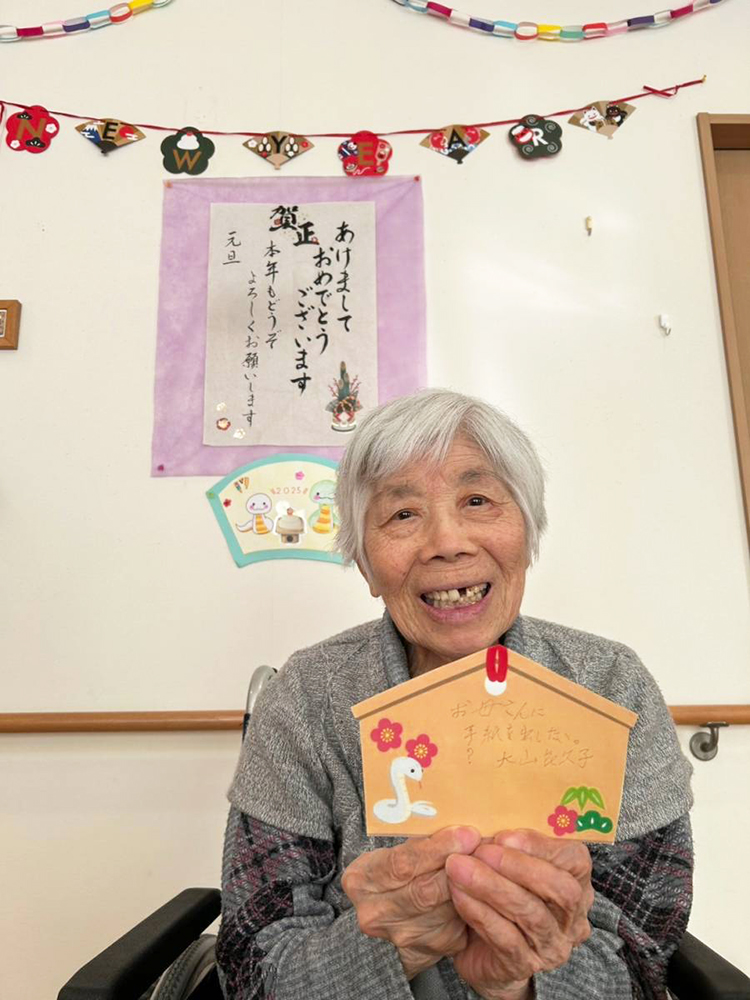 NEW YEAR
賀正
あけまして
おめでとう
ございます
本年もどうぞ
よろしくお願いします
元旦
2025
お母さんに
手紙を出したい。
?